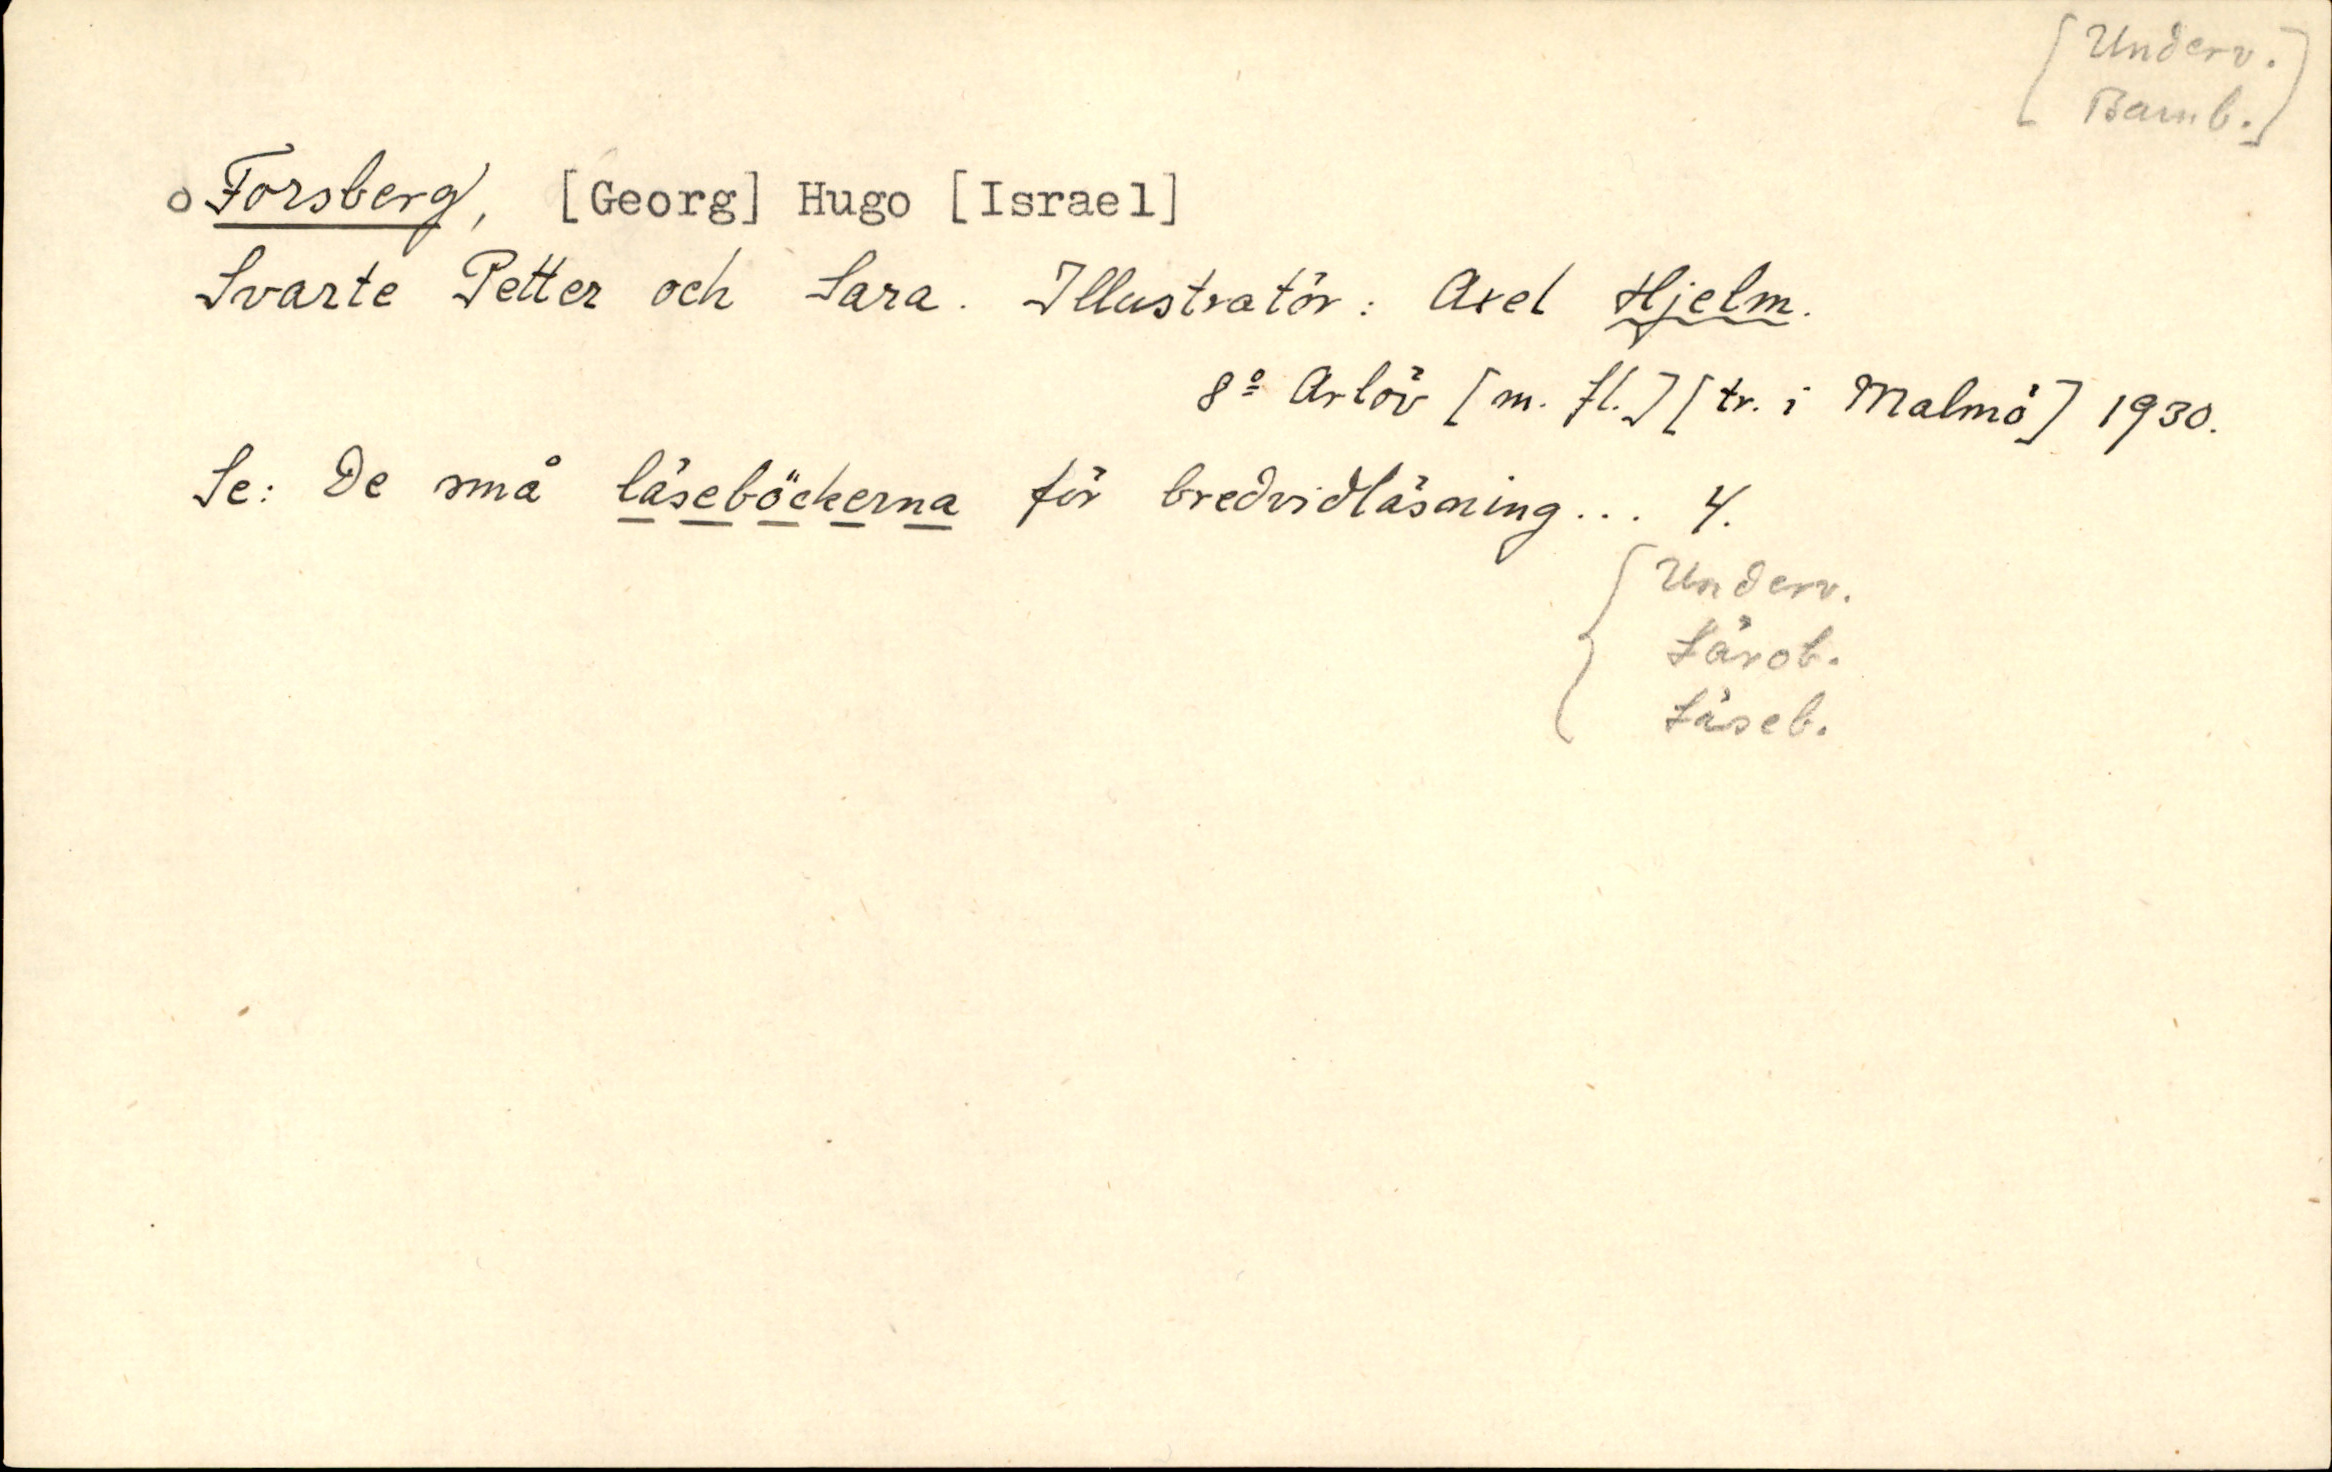 [Underv.
Barnb.]
o Forsberg, [Georg] Hugo [Israel]
Svarte Petter och Sara. Illustratör: Axel Hjelm.
8º Arlöv [m. fl.] [tr. i Malmö] 1930.
Se: De små läseböckerna för bredvidläsning... 4.
{Underv.
Lärob.
Läseb.